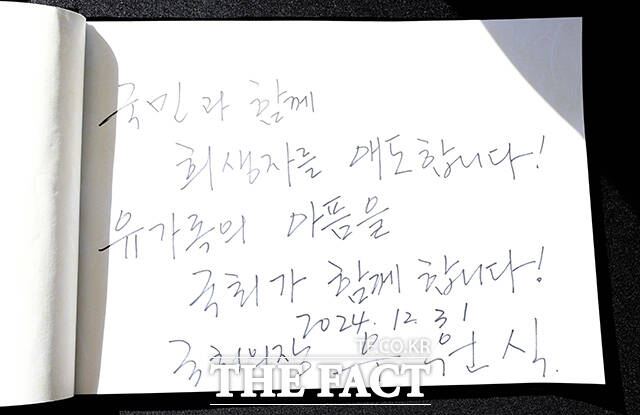 국민과 함께
희생자를 애도합니다!
유가족의 아픔을
국회가 함께 합니다!
2024. 12. 31
국회의장 우원식.
TF.CO.KR
THE FACT